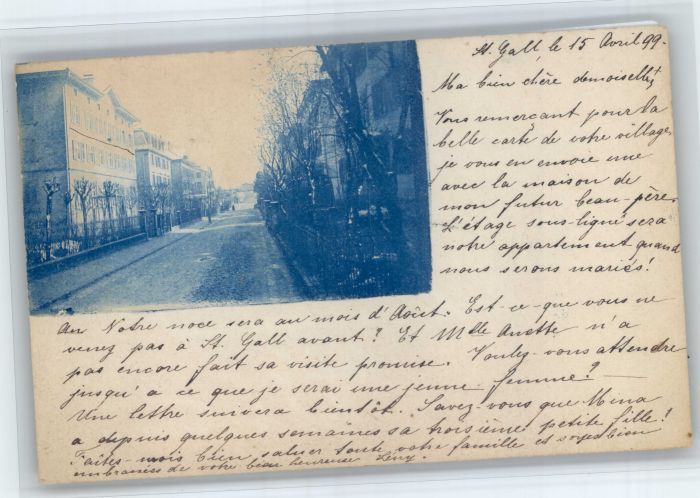 St. Gall, le 15 Avril 99.
Ma bien chère demoiselle,
Vous remerçant pour la
belle carte de votre village,
je vous en envoie une
avec la maison de
mon futur beau-père.
L'étage sous-ligné sera
notre appartement quand
nous serons mariés!
Notre noce sera au mois d'Août. Est-ce-que vous ne
venez pas à St. Gall avant? Et Mlle Anette n'a
pas encore fait sa visite promise. Voulez-vous attendre
jusqu'a ce que je serai une jeune femme?—
Une lettre suivera bientôt. Savez-vous que Mina
a depuis quelques semaines sa troisième petite fille!
Faites-mois bien saluer toute votre famille et soyez bien
embrassées de votre bien heureuse